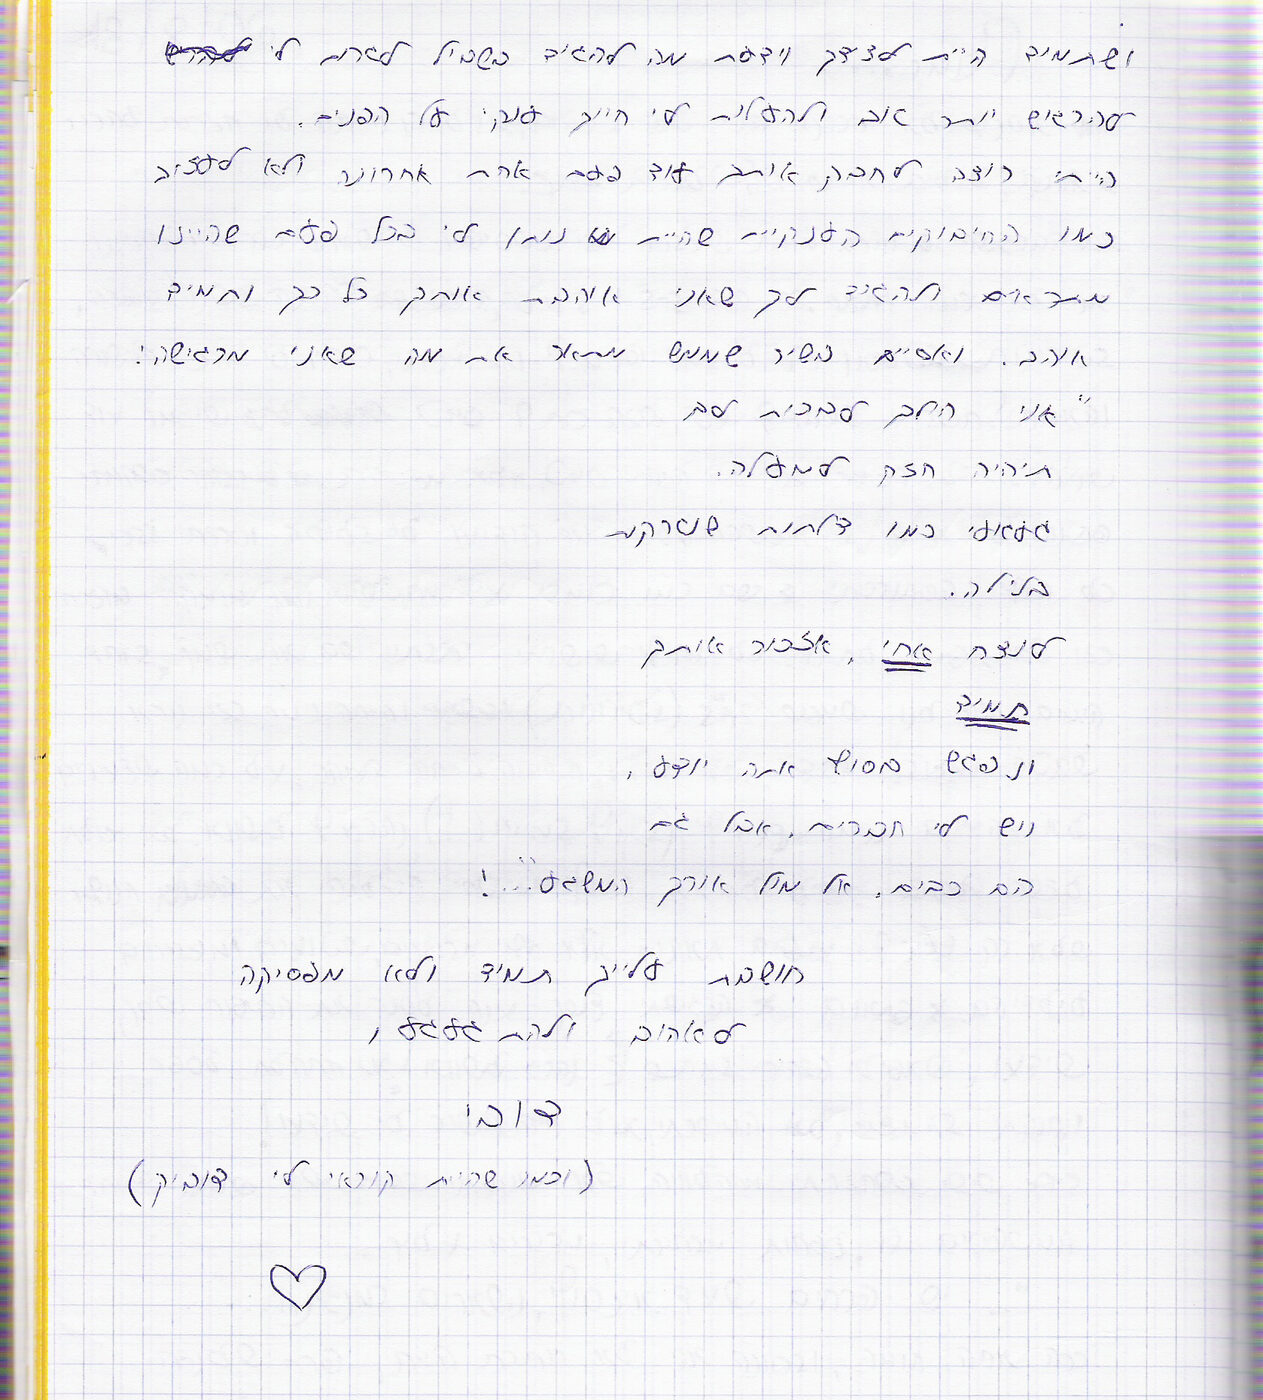 ושתמיד היית לצידך וידעת מה להגיד בשביל לגרום לי
להרגיש יותר טוב ולהעלות לי חיוך ענקי על הפנים.
הייתי רוצה לחבק אותך עוד פעם אחת אחרונה ולא לעזוב
כמו החיבוקים הענקיים שהיית נותן לי בכל פעם שהיינו
מתראים ולהגיד לך שאני אוהבת אותך כל כך ותמיד
אוהב. ואסיים בשיר שממש מתאר את מה שאני מרגישה:
"אני הולך לבכות לך
תיהיה חזק למעלה.
געגועי כמו דלתות שנטרקות
בלילה.
לנצח אחי, אזכור אותך
תמיד
ונפגש בסוף אתה יודע,
ויש לי חברים, אבל גם
הם כבים, אל מול אורך המשגע..."!
חושבת עלייך תמיד ולא מפסיקה
לאהוב ולהתגעגע,
דובי
(וכמו שהיית קורא לי דוביק)